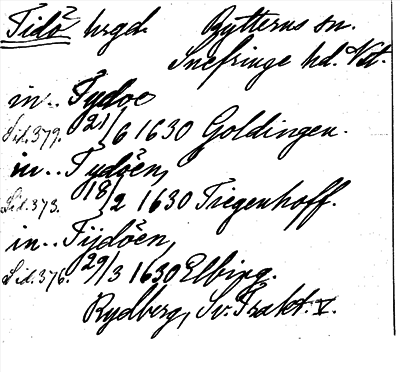 Tidö hrgd. Rytterns sn.
Snefringe hd. Vstl.
in.. Tydoe
Sid. 379. 21/6 1630 Goldingen.
in.. Tydöen,
Sid. 373. 18/2 1630 Tiegenhoff.
in.. Tijdöen,
Sid. 376. 29/3 1630 Elbing.
Rydberg, Sv. Trakt. V.